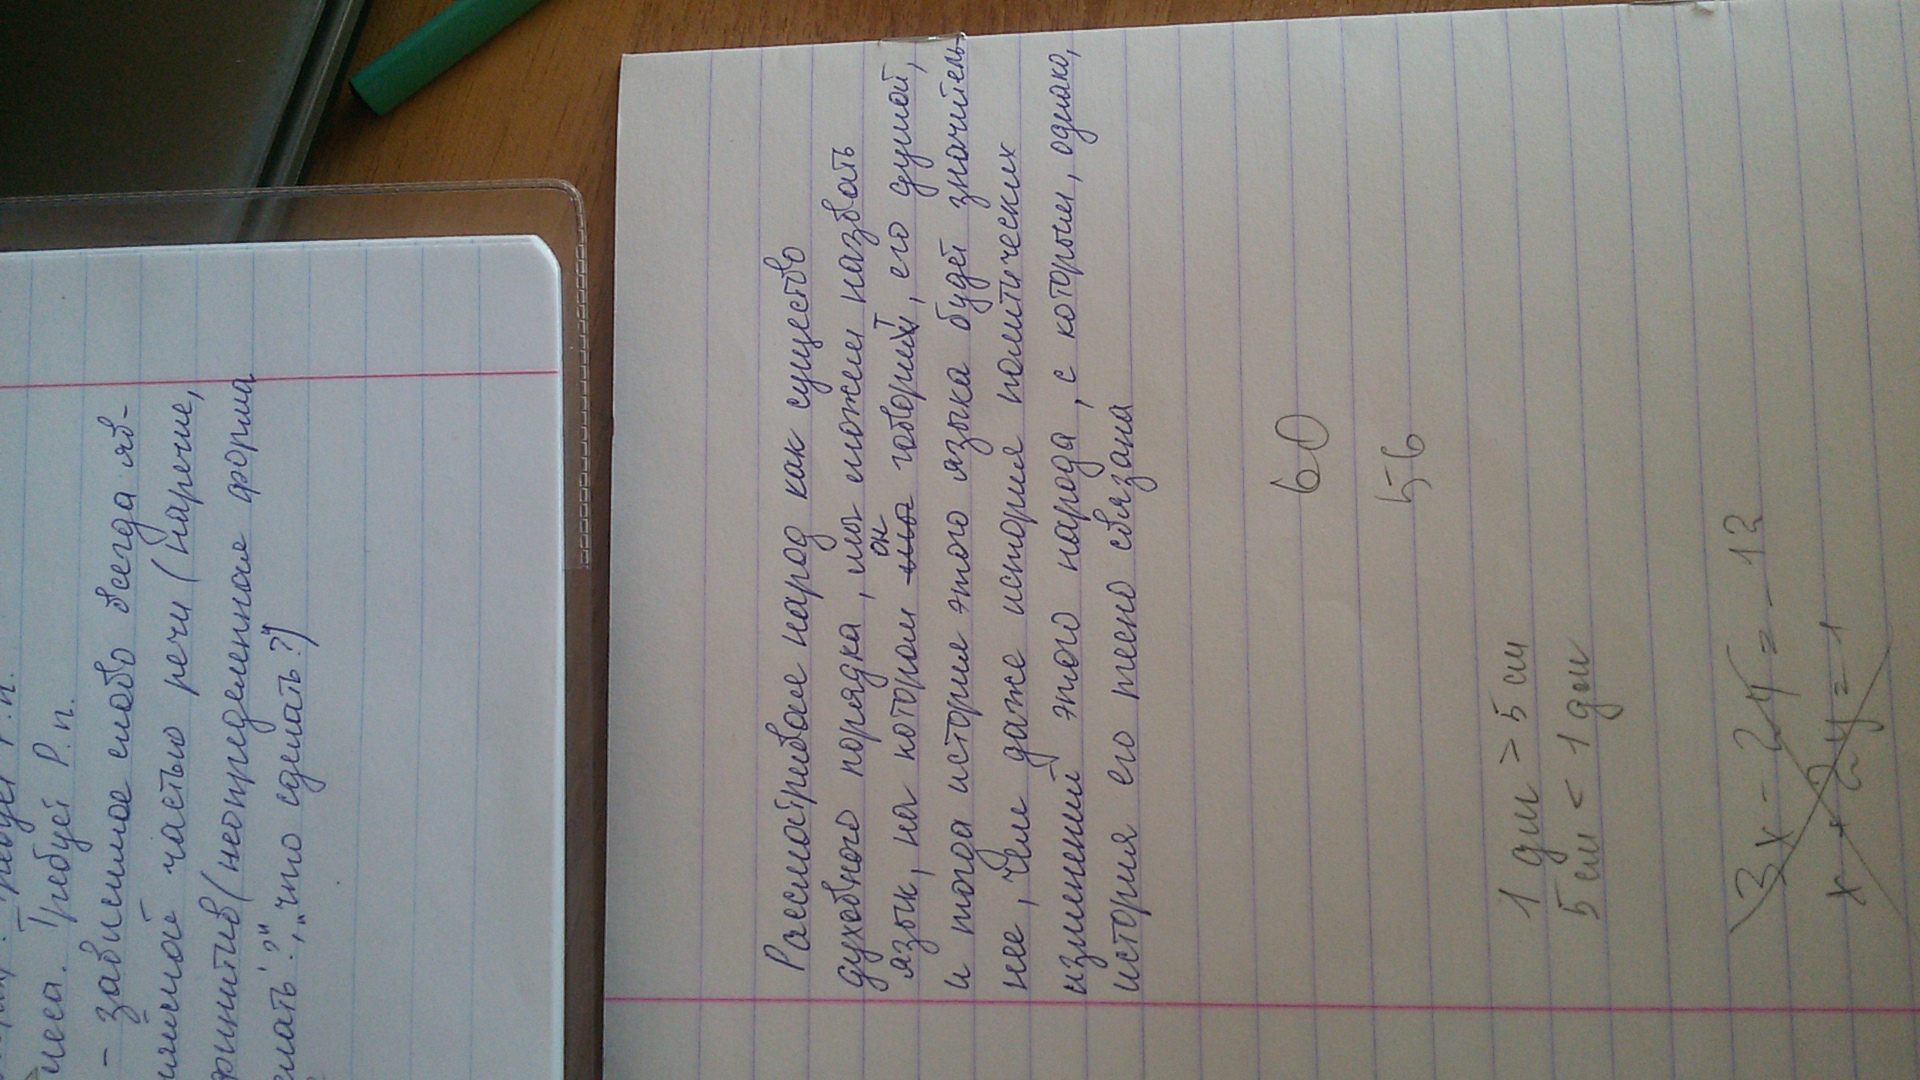 леса. Требует Р.п.
- зависимое слово всегда яв-
частью речи (наречие,
(неопределенная форма
"что сделать?")
Рассматривая народ как существо
духовного порядка, мы можем назвать
язык, на котором мы он говорит, его душой,
и тогда история этого языка будет значитель-
нее, чем даже история политических
изменений этого народа, с которыми, однако,
история его тесно связана
60
56
1 дм > 5 см
5 см < 1 дм
3x - 2y = - 12
x + 2y = 1